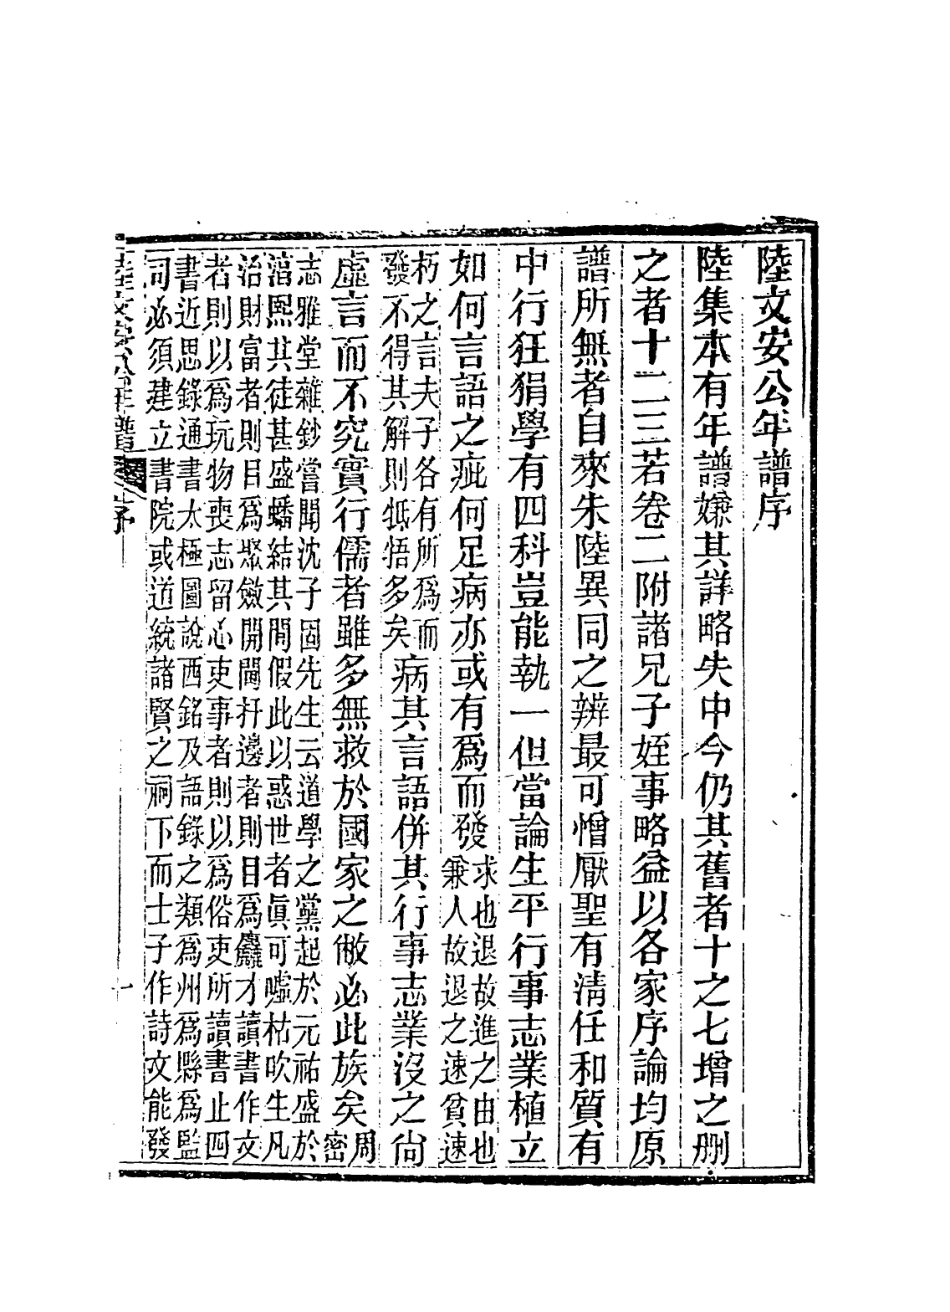 陸文安公年譜序
陸集本有年譜嫌其詳略失中今仍其舊者十之七增之刪
之者十二三若卷二附諸兄子姪事略益以各家序論均原
譜所無者自來朱陸異同之辨最可憎厭聖有清任和質有
中行狂狷學有四科豈能執一但當論生平行事志業植立
如何言語之疵何足病亦或有爲而發
求也退故進之由也
兼人故退之速貧速
朽之言夫子各有所爲而
發不得其解則牴牾多矣
病其言語併其行事志業沒之尙
虛言而不究實行儒者雖多無救於國家之敝必此族矣
周
密
志雅堂雜鈔嘗聞沈子固先生云道學之黨起於元祐盛於
湻熙其徒甚盛蟠結其間假此以惑世者眞可噓枯吹生凡
治財富者則目爲聚斂開閫扞邊者則目爲麤才讀書作文
者則以爲玩物喪志留心吏事者則以爲俗吏所讀書止四
書近思錄通書太極圖說西銘及語錄之類爲州爲縣爲監
司必須建立書院或道統諸賢之祠下而士子作詩文能發
陸文安公年譜
序
一